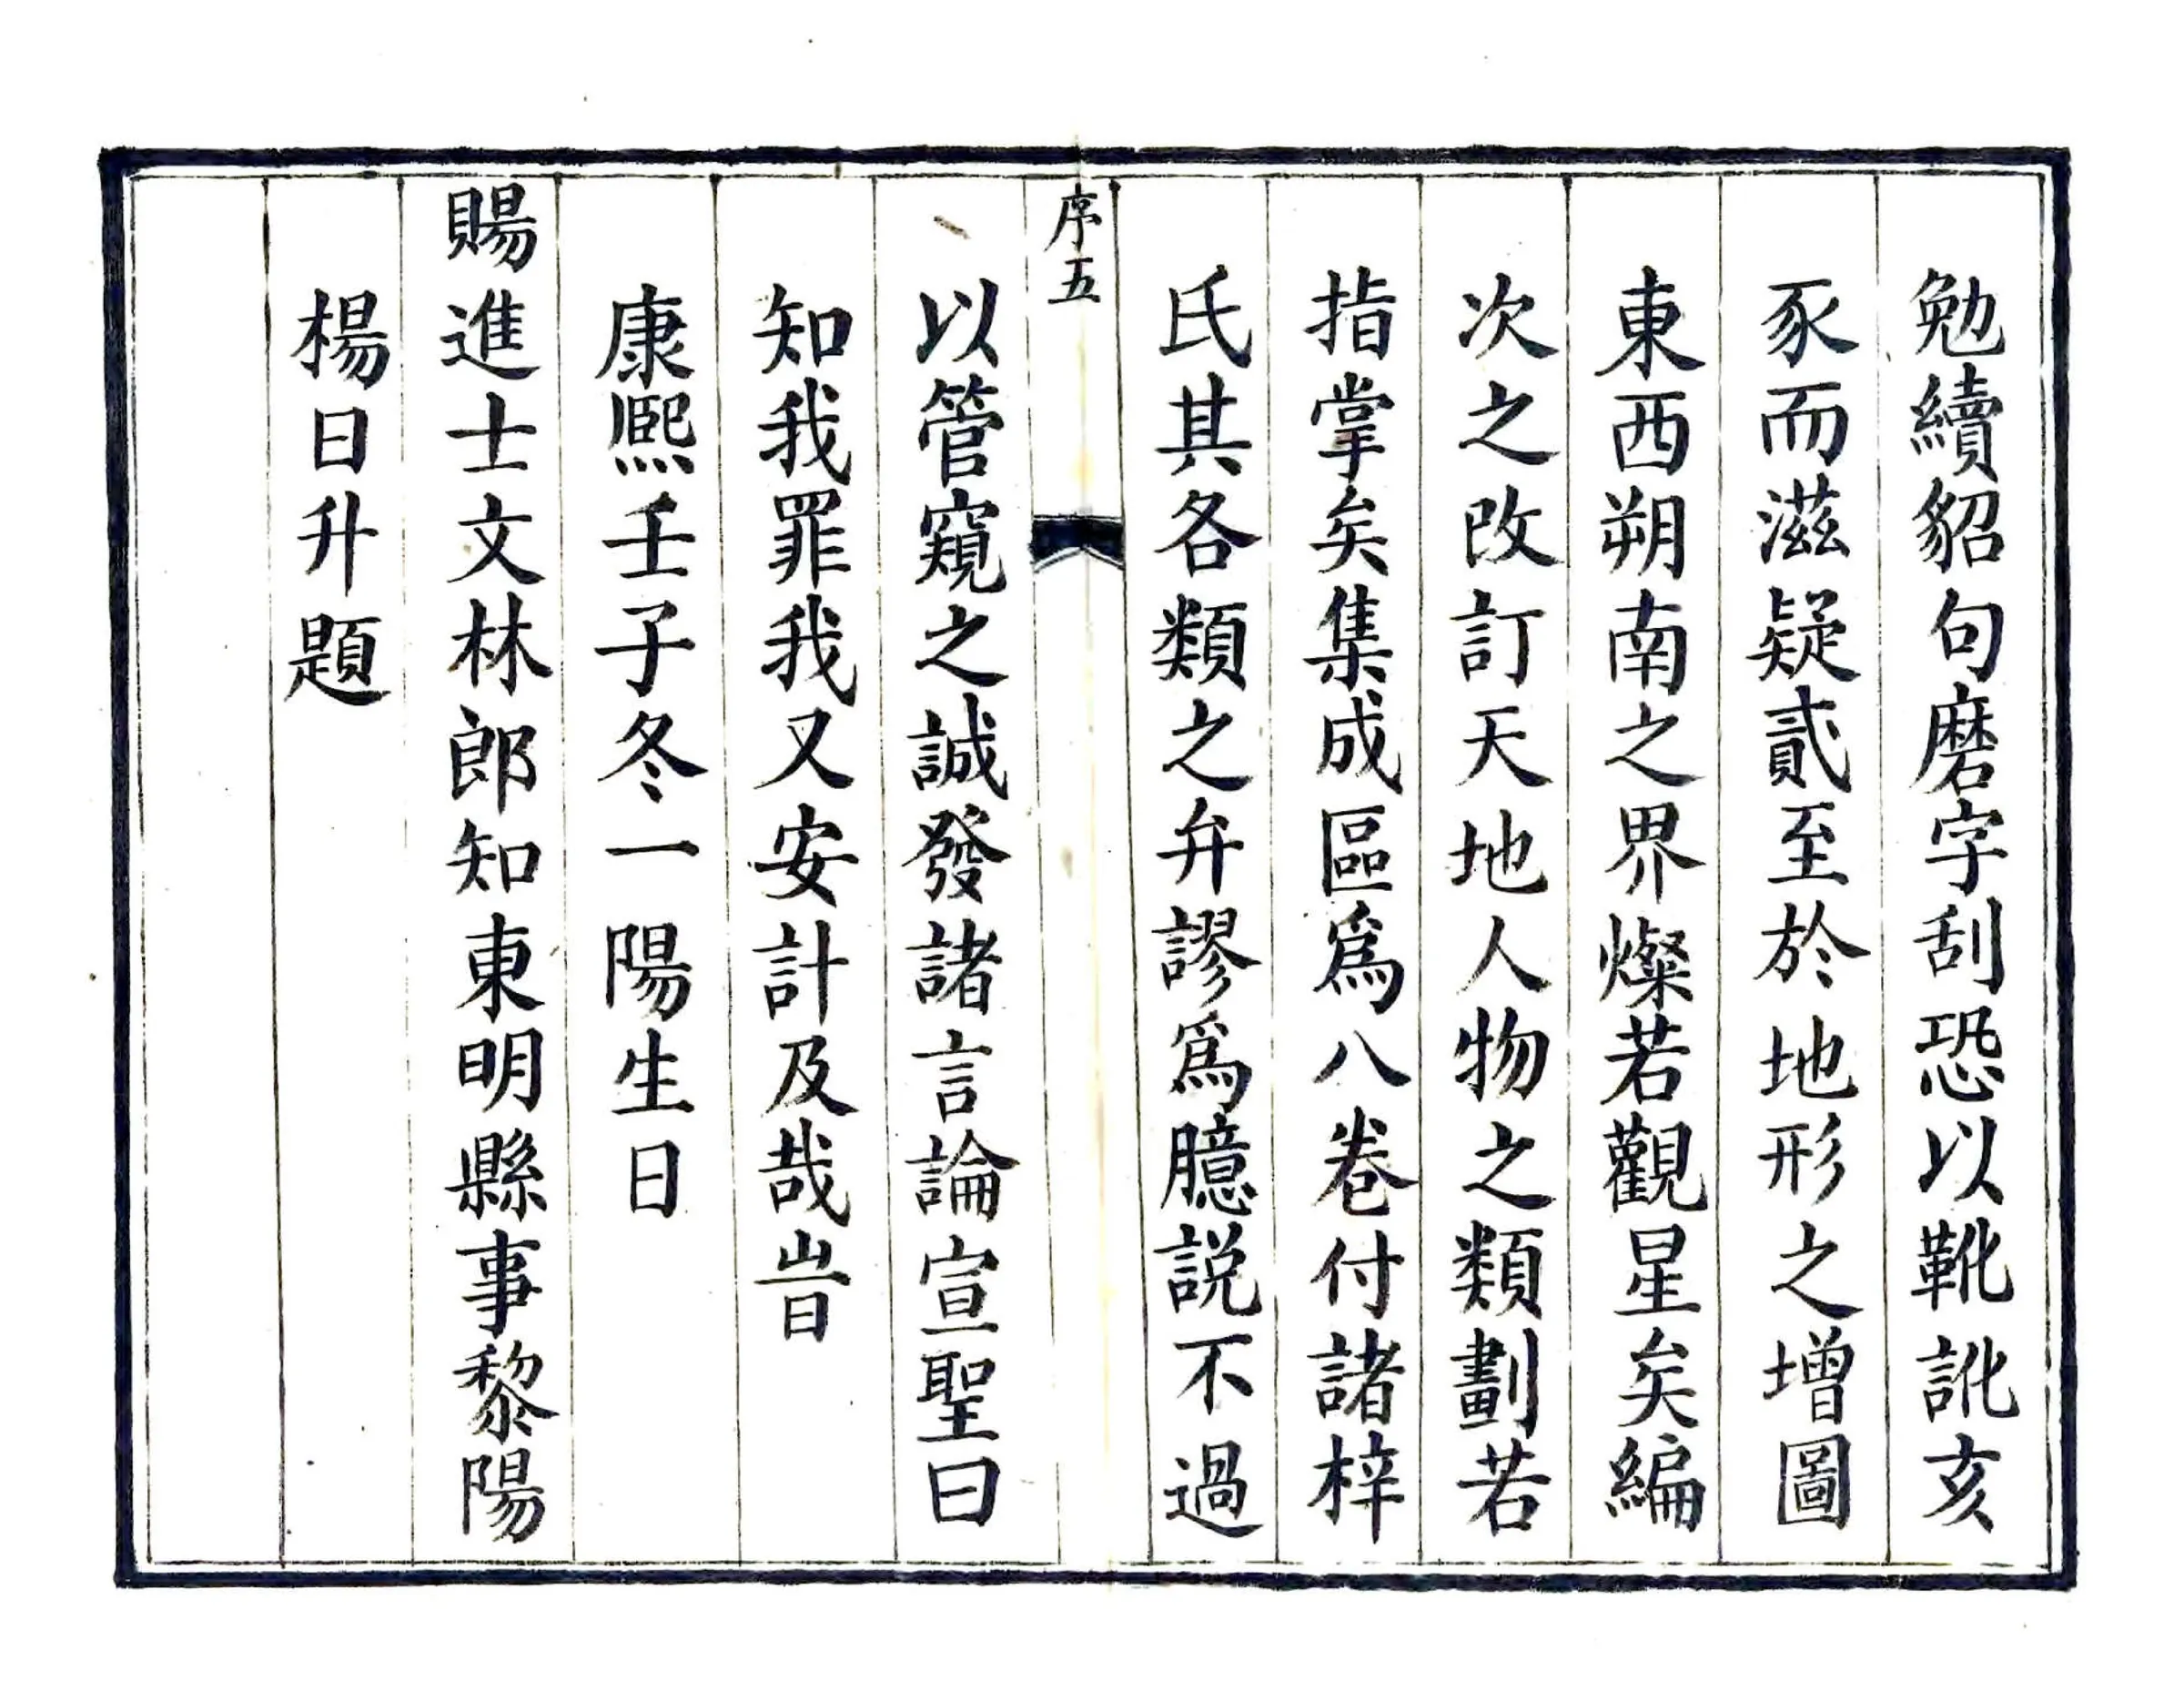 勉續貂句磨字刮恐以靴訛亥
豕而滋疑貳至於地形之增圖
東西朔南之界燦若觀星矣編
次之改訂天地人物之類劃若
指掌矣集成區爲八卷付諸梓
氏其各類之弁謬爲臆説不過
序五
以管窺之誠發諸言論宣聖曰
知我罪我又安計及哉旹
康熙壬子冬一陽生日
賜進士文林郎知東明縣事黎陽
楊日升題